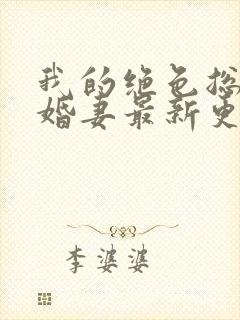 我的绝色总
婚妻最新更
李婆婆